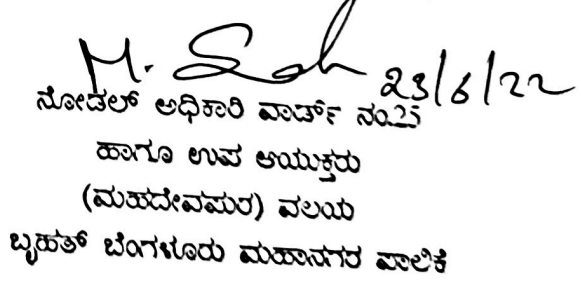 23/6/22
ನೋಡಲ್ ಅಧಿಕಾರಿ ವಾರ್ಡ್ ನಂ.25
ಹಾಗೂ ಉಪ ಆಯುಕ್ತರು
(ಮಹದೇವಪುರ) ವಲಯ
ಬೃಹತ್ ಬೆಂಗಳೂರು ಮಹಾನಗರ ಪಾಲಿಕೆ